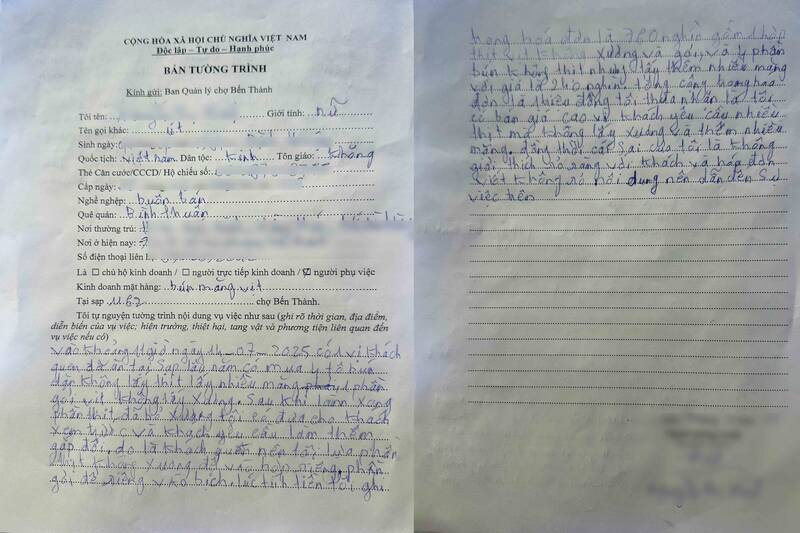 CỘNG HÒA XÃ HỘI CHỦ NGHĨA VIỆT NAM
Độc lập – Tự do – Hạnh phúc
BẢN TƯỜNG TRÌNH
Kính gửi: Ban Quản lý chợ Bến Thành
Tôi tên: Giới tính: nữ
Tên gọi khác: út
Sinh ngày:
Quốc tịch: việt nam Dân tộc: kinh Tôn giáo: không
Thẻ Căn cước/CCCD/ Hộ chiếu số:
Cấp ngày:
Nghề nghiệp: buôn bán
Quê quán: Bình thuận
Nơi thường trú:
Nơi ở hiện nay:
Số điện thoại liên
Là ☐ chủ hộ kinh doanh / ☐ người trực tiếp kinh doanh / ☑ người phụ việc
Kinh doanh mặt hàng: bún măng vịt
Tại sạp 1162 chợ Bến Thành.
Tôi tự nguyện tường trình nội dung vụ việc như sau (ghi rõ thời gian, địa điểm,
diễn biến của vụ việc; hiện trường, thiệt hại, tang vật và phương tiện liên quan đến
vụ việc nếu có)
vào khoảng 11 giờ ngày 14-07-2025 có 1 vị khách
quen đã ăn tại sạp lâu năm có mua 4 tô bún
dặn không lấy thịt lấy nhiều măng 1 phần
gỏi vịt không lấy xương. Sau khi làm xong
phần thịt đã bỏ xương tôi có đưa cho khách
xem trước và khách yêu cầu làm thêm
gấp đôi, do là khách quen nên tôi lựa phần
thịt không xương để vào hộp riêng, phần
gỏi để riêng vào bịch, lúc tính tiền tôi ghi
trong hoá đơn là 760 nghìn gồm 1 hộp
thịt vịt không xương và gỏi, và 4 phần
bún không thịt nhưng lấy thêm nhiều măng
với giá là 240 nghìn. tổng cộng trong hoá
đơn là 1 triệu đồng tôi thừa nhận là tôi
có bán giá cao vì khách yêu cầu nhiều
thịt mà không lấy xương và thêm nhiều
măng, đồng thời cái sai của tôi là không
giải thích rõ ràng với khách và hoá đơn
viết không rõ nội dung nên dẫn đến sự
việc trên